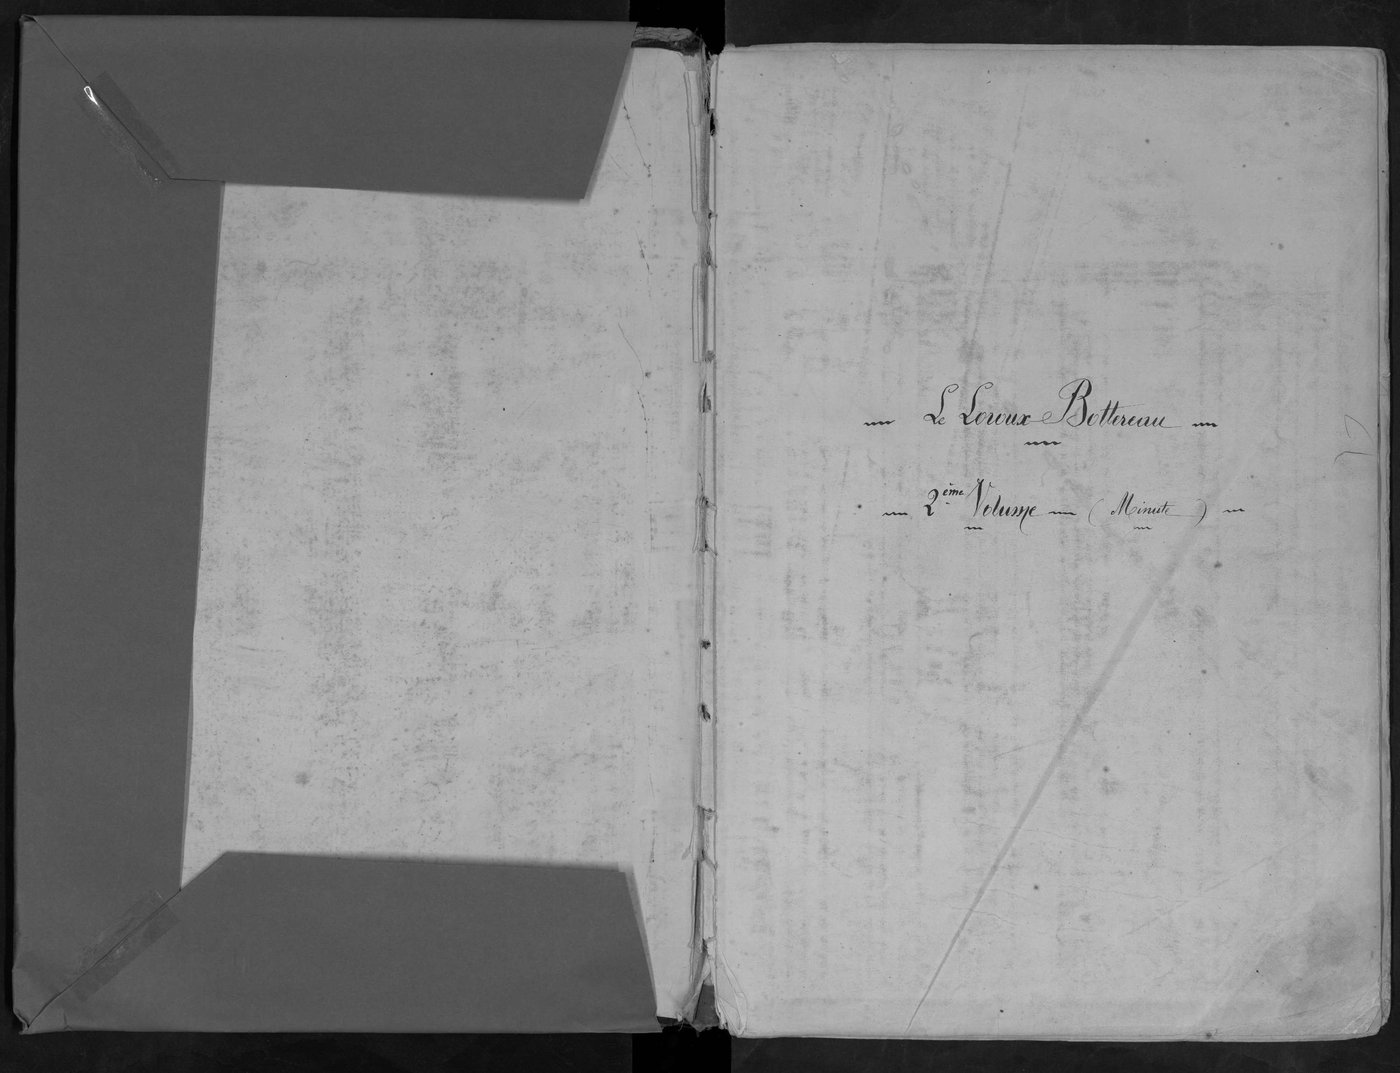 Le Loroux Bottereau
2ème Volume (Minute)